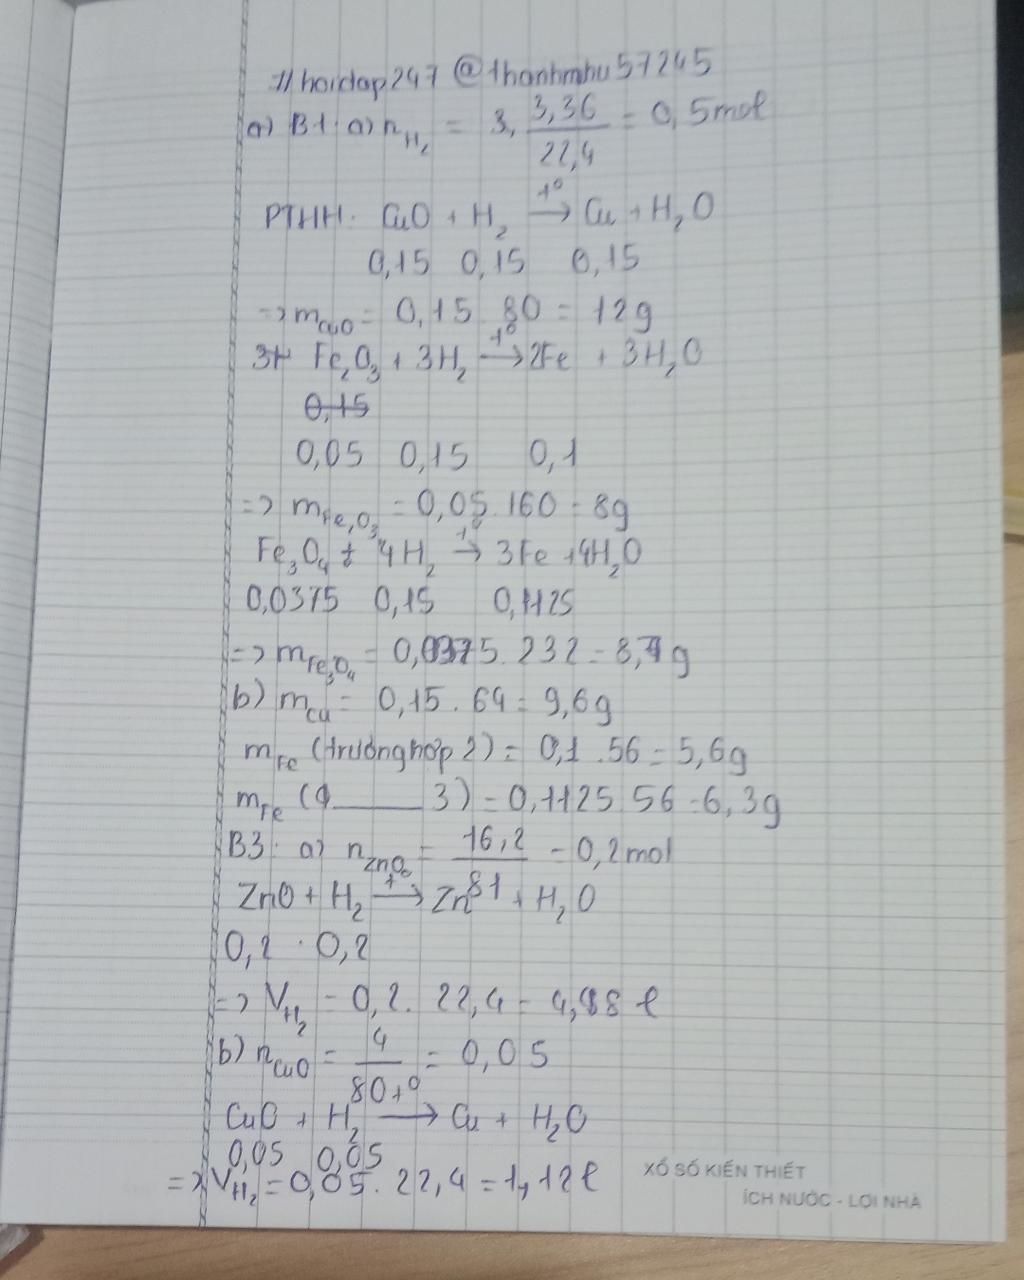 //hoidap247 @thanhnhu57245
a) B1: a) n H₂ = 3, 3,36/22,4 = 0,5mol
PTHH: CuO + H₂ t°→ Cu + H₂O
0,15 0,15 0,15
=> mCuO = 0,15 80 = 12g
3H Fe₂O₃ + 3H₂ t°→ 2Fe + 3H₂O
0,15
0,05 0,15 0,1
=> mFe₂O₃ = 0,05.160 = 8g
Fe₃O₄ + 4H₂ t°→ 3Fe + 4H₂O
0,0375 0,15 0,1125
=> mFe₃O₄ = 0,0375.232 = 8,7g
b) mCu = 0,15.64 = 9,6g
mFe (trường hợp 2) = 0,1.56 = 5,6g
mFe ( ____ 3) = 0,1125 56 = 6,3g
B3: a) nZnO = 16,2/81 = 0,2mol
ZnO + H₂ t°→ Zn + H₂O
0,2 . 0,2
=> VH₂ = 0,2. 22,4 = 4,48 l
b) nCuO = 4/80 = 0,05
CuO + H₂ t°→ Cu + H₂O
0,05 0,05
=> VH₂ = 0,05. 22,4 = 1,12l
XỔ SỐ KIẾN THIẾT
ÍCH NƯỚC - LỢI NHÀ